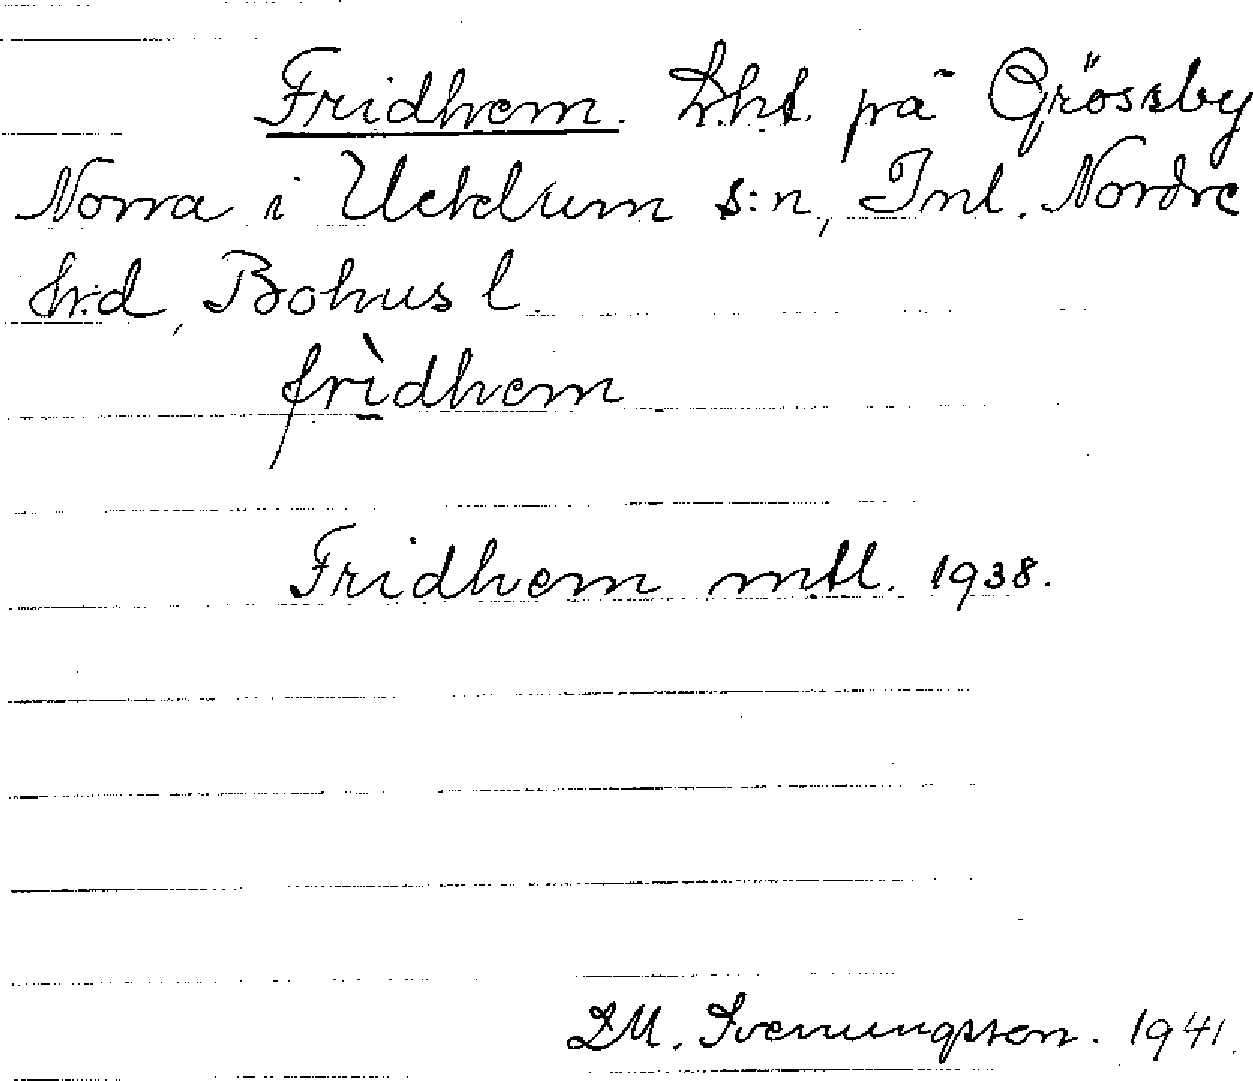 Fridhem. Lht. på Grössby
Norra i Ucklum s:n, Inl. Nordre
hrd, Bohus l.
frìdhem
Fridhem mtl. 1938.
Svenungsson. 1941.